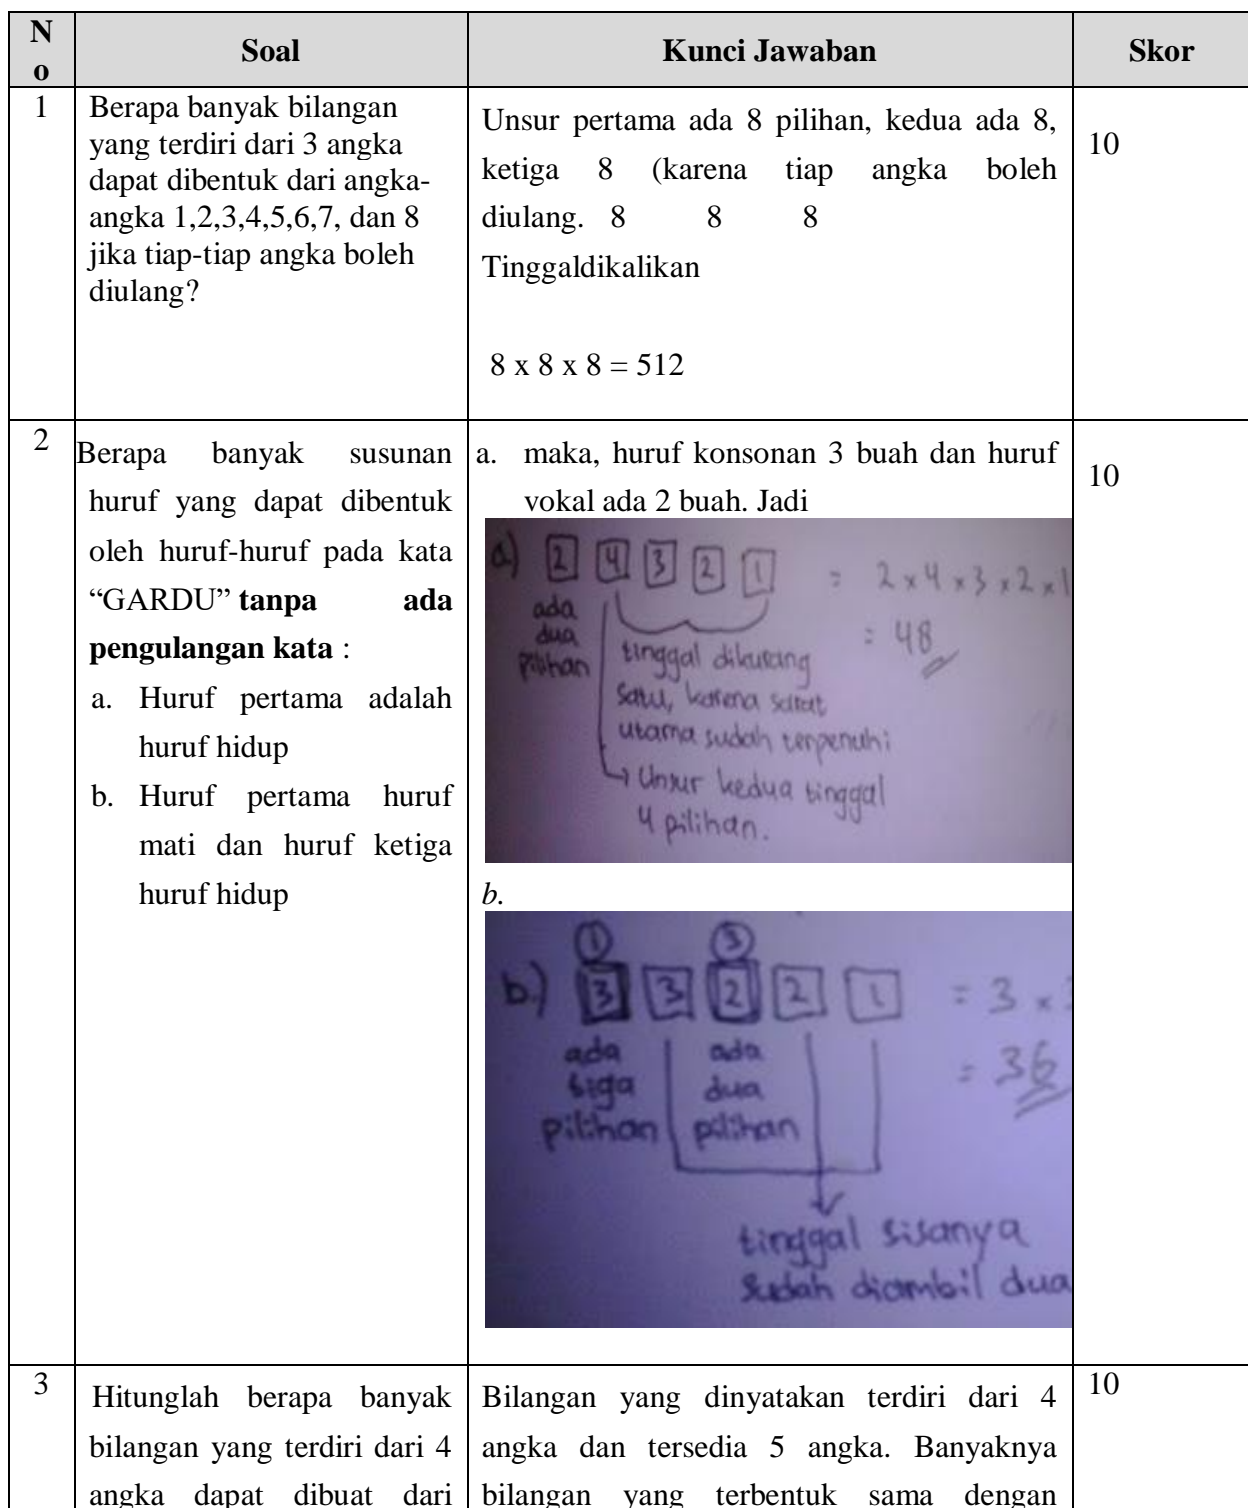 No
Soal
Kunci Jawaban
Skor
1
Berapa banyak bilangan
yang terdiri dari 3 angka
dapat dibentuk dari angka-
angka 1,2,3,4,5,6,7, dan 8
jika tiap-tiap angka boleh
diulang?
Unsur pertama ada 8 pilihan, kedua ada 8,
ketiga 8 (karena tiap angka boleh
diulang. 8 8 8
Tinggaldikalikan
8 x 8 x 8 = 512
10
2
Berapa banyak susunan
huruf yang dapat dibentuk
oleh huruf-huruf pada kata
“GARDU” tanpa ada
pengulangan kata :
a. Huruf pertama adalah
huruf hidup
b. Huruf pertama huruf
mati dan huruf ketiga
huruf hidup
a. maka, huruf konsonan 3 buah dan huruf
vokal ada 2 buah. Jadi
a) 2 4 3 2 1 = 2 x 4 x 3 x 2 x 1
= 48
ada
dua
pilihan
tinggal dikurang
satu, karena sarat
utama sudah terpenuhi
→ Unsur kedua tinggal
4 pilihan.
b.
1 3
b.) 3 3 2 2 1 = 3 x 3
= 36
ada
tiga
pilihan
ada
dua
pilihan
tinggal sisanya
sudah diambil dua
10
3
Hitunglah berapa banyak
bilangan yang terdiri dari 4
angka dapat dibuat dari
Bilangan yang dinyatakan terdiri dari 4
angka dan tersedia 5 angka. Banyaknya
bilangan yang terbentuk sama dengan
10